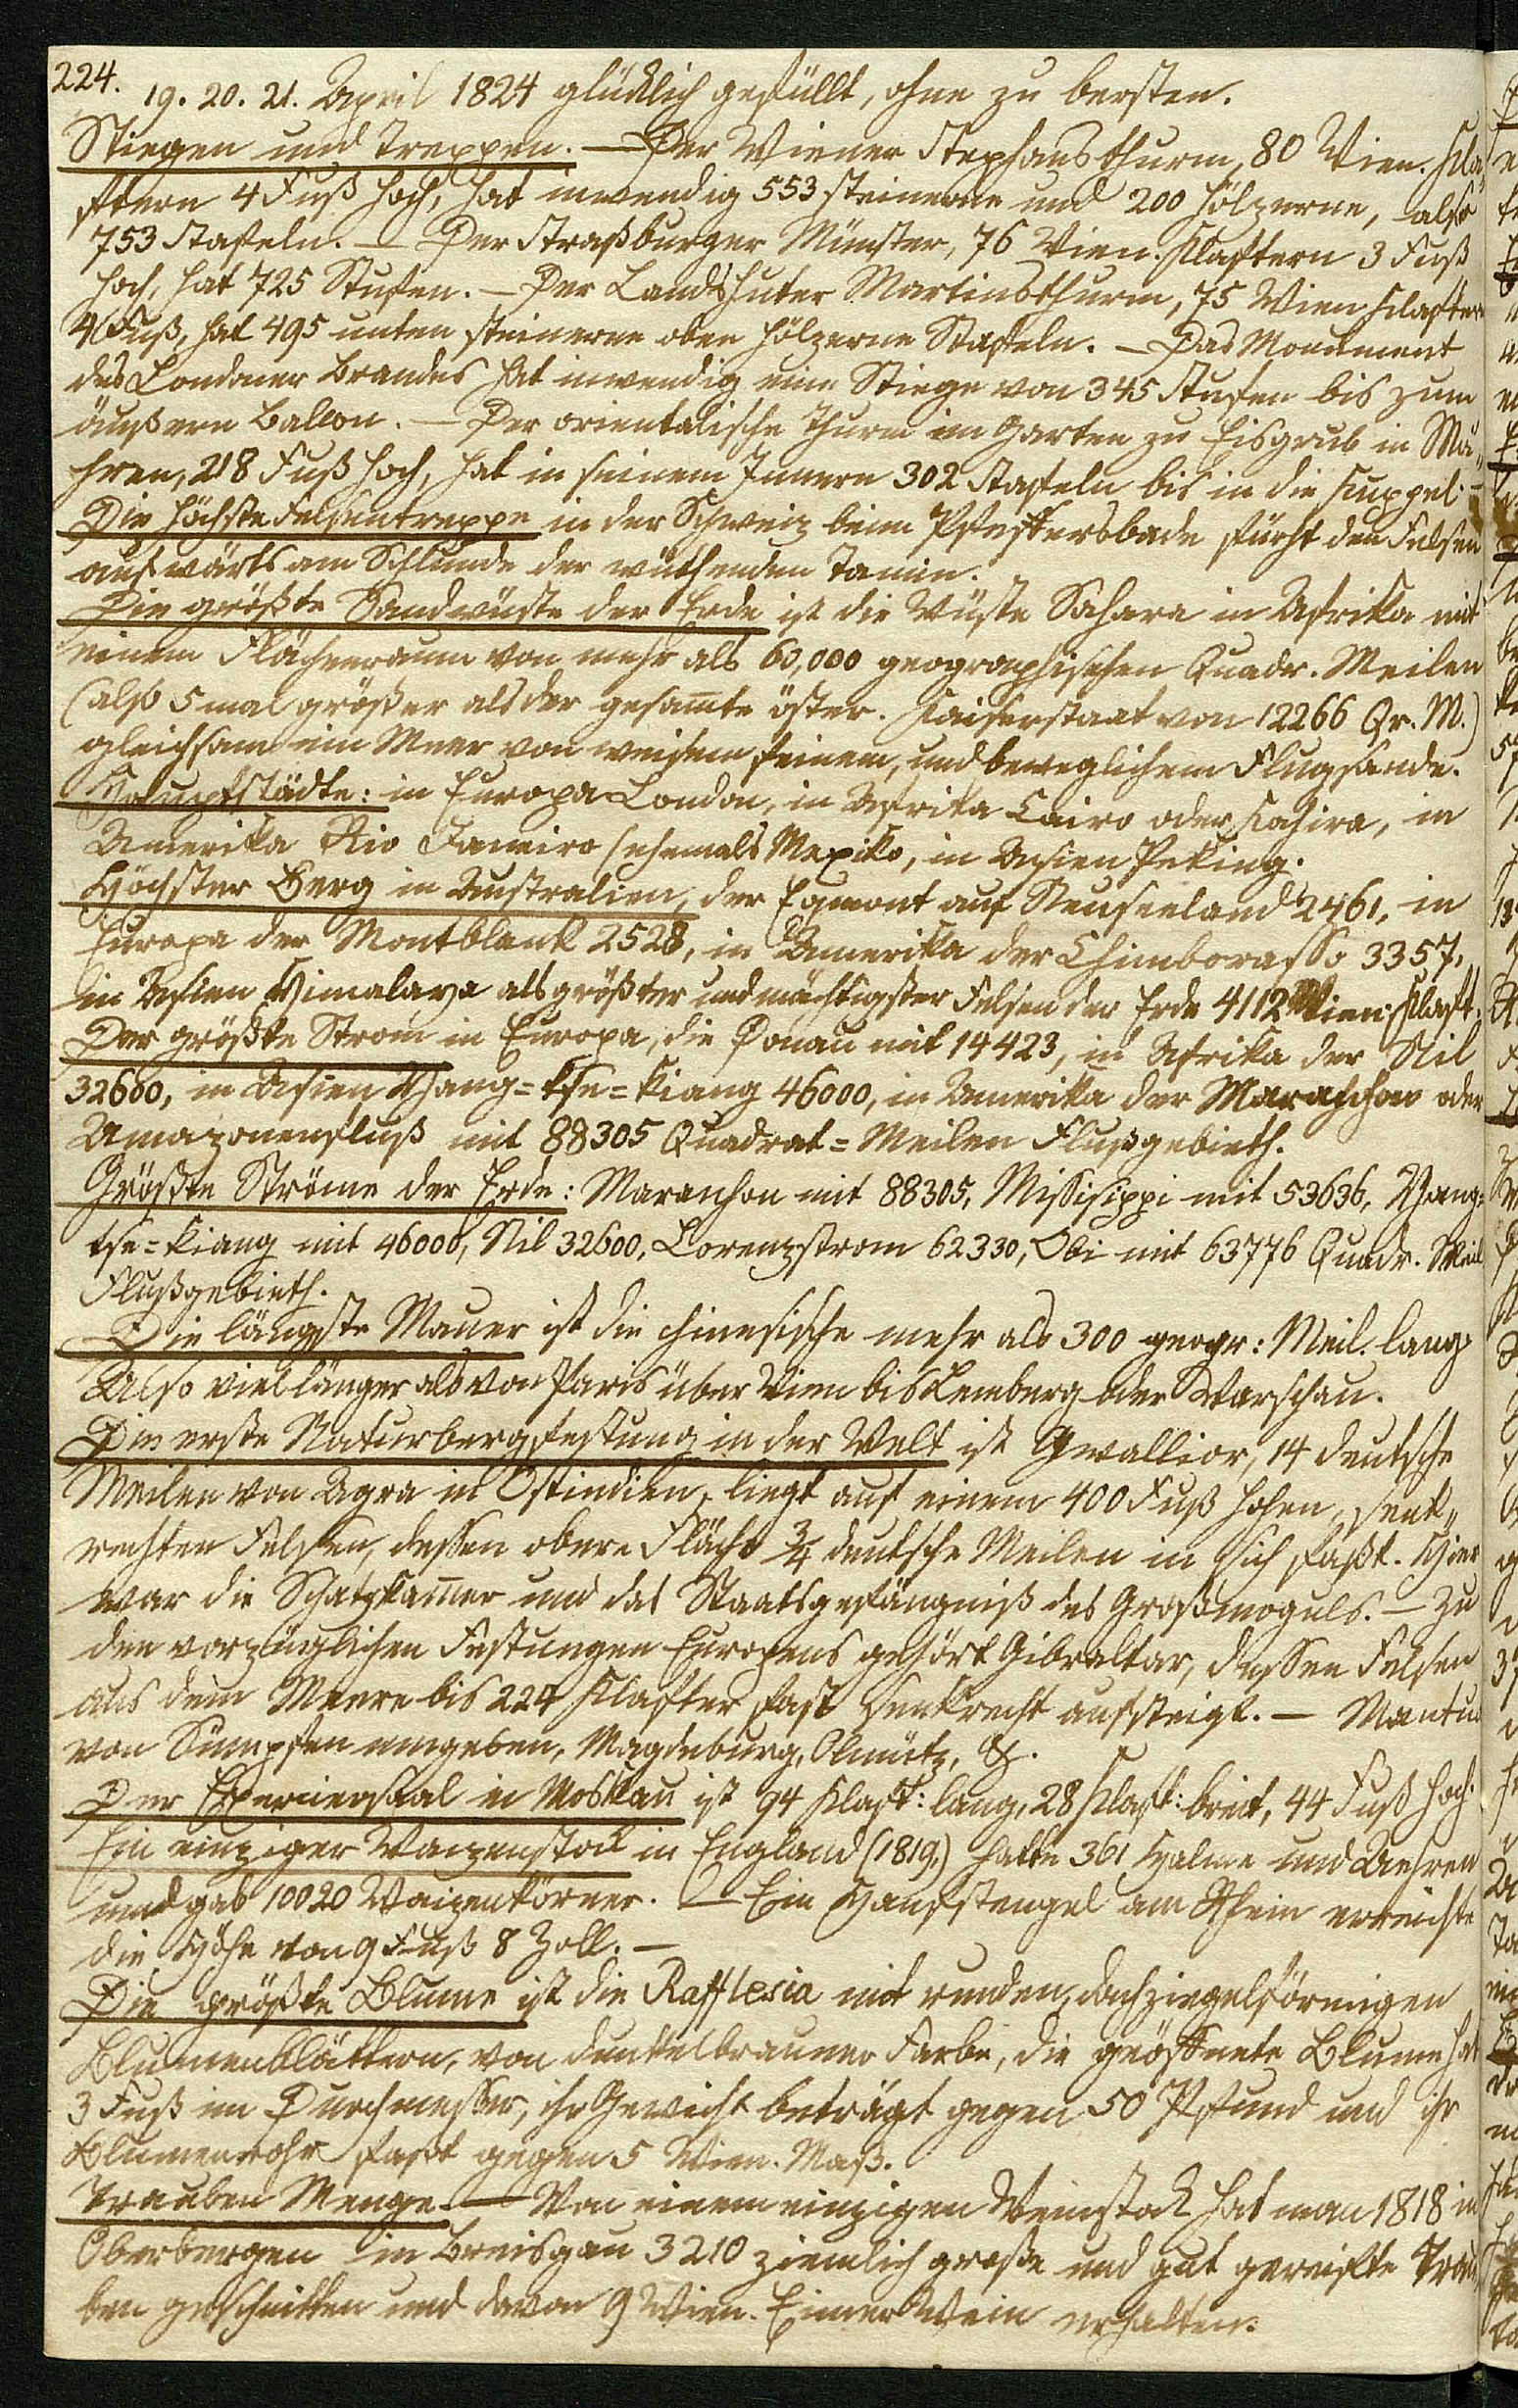 224.
19. 20. 21. April 1824 glücklich gefüllt, ohne zu bersten.
Stiegen und Treppen. — Der Wiener Stephansthurm, 80 Wien. Kla„
ftern 4 Fuß hoch, hat inwendig 553 steinerne und 200 hölzerne, also
753 Staffeln. — Der Straßburger Münster, 76 Wien. Klaftern 3 Fuß
hoch, hat 725 Stufen. — Der Landshuter Martinsthurm, 75 Wien Klafter
4 Fuß, hat 495 unten steinerne oben hölzerne Staffeln. — Das Monument
des Londoner Brandes hat inwendig eine Stiege von 345 Stufen bis zum
äußern Balcon. — Der orientalische Thurm im Garten zu Eisgrub in Mä„
hren, 218 Fuß hoch, hat in seinem Innern 302 Staffeln bis in die Kuppel. —
Die höchste Felsentreppe in der Schweiz beim Pfeffersbade führt den Felsen
aufwärts am Schlunde der wüthenden Tamin.
Die größte Sandwüste der Erde ist die Wüste Sahara in Afrika mit
einem Flächenraum von mehr als 60,000 geographischen Quadr. Meilen
(also 5 mal größer als der gesam̅te öster. Kaiserstaat von 12266 Qr. M.)
gleichsam ein Meer von weisem feinem, und beweglichem Flugsande.
Hauptstädte: in Europa London, in Afrika Cairo oder Kahira, in
Amerika Rio Janeiro (ehemals Mexiko, in Asien Peking.
Höchster Berg in Australien, der Egmont auf Neuseeland 2461, in
Europa der Montblank 2528, in Amerika der Chimborasso 3357,
in Asien Himalaya als größter und mächtigster Felsen der Erde 4112 Wien. Klaft.
Der größte Strom in Europa, die Donau mit 14423, in Afrika der Nil
32600, in Asien Yang=tse=kiang 46000, in Amerika der Maranhon oder
Amazonenfluß mit 88305 Quadrat=Meilen Flußgebieth.
Größte Ströme der Erde: Maranhon mit 88305, Missisippi mit 53636, Yang=
tse=kiang mit 46000, Nil 32600, Lorenzstrom 62330, Obi mit 63776 Quadr. Meil
Flußgebieth.
Die längste Mauer ist die chinesische mehr als 300 geogr: Meil. lang
Also viel länger als von Paris über Wien bis Lemberg oder Warschau.
Die erste Naturbergfestung in der Welt ist Gwallior, 14 deutsche
Meilen von Agra in Ostindien, liegt auf einem 400 Fuß hohen, senk„
rechten Felsen, dessen obere Fläche 3/4 deutsche Meilen in sich faßt. Hier
war die Schatzkam̅er und das Staatsgefängniß des Großmoguls. — Zu
den vorzüglichen Festungen Europens gehört Gibraltar, dessen Felsen
aus dem Meere bis 224 Klafter fast senkrecht aufsteigt. — Mantua
von Sümpfen umgeben, Magdeburg, Olmütz, &.
Der Exerciersaal in Moskau ist 94 Klaft: lang, 28 Klaft: breit, 44 Fuß hoch.
Ein einziger Waizenstock in England (1819,) hatte 361 Halme und Aehren
und gab 10020 Waizenkörner. — Ein Hanfstengel am Rhein erreichte
die Höhe von 9 Fuß 8 Zoll. —
Die größte Blume ist die Rafflesia mit runden, dachziegelförmigen
Blumenblättern, von dunkelbrauner Farbe, die geöffnete Blume hat
3 Fuß im Durchmesser, ihr Gewicht beträgt gegen 50 Pfund und ihr
Blumenrohr faßt gegen 5 Wien. Maß.
Trauben Menge. — Von einem einzigen Weinstock hat man 1818 in
Oberbergen im Breisgau 3210 ziemlich große und gut gereifte Trau
ben geschnitten und davon 9 Wien. Eimer Wein erhalten.